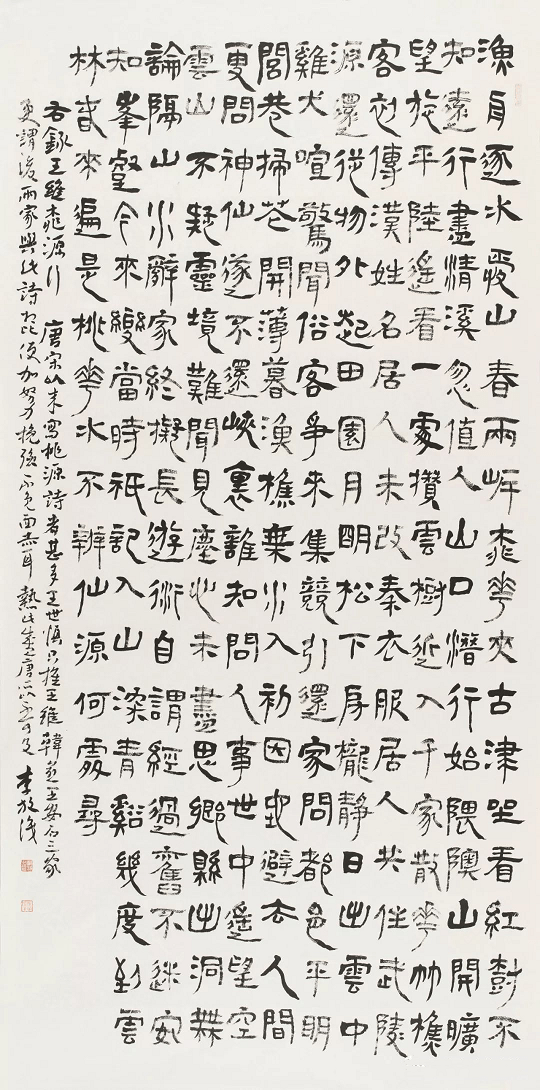 漁舟逐水愛山春兩岸桃華夾古津坐看紅樹不
知遠行盡清溪忽值人山口潛行始隈隩山開曠
望旋平陸遙看一處攢雲樹近入千家散華竹樵
客初傳漢姓名居人未改秦衣服居人共住武陵
源還從物外起田園月明松下房櫳靜日出雲中
雞犬喧驚聞俗客爭來集競引還家問都邑平明
閭巷掃花開薄暮漁樵乘水入初因地避去人間
更問神仙遂不還峽裏誰知問人事世中遙望空
雲山不疑靈境難聞見塵心未盡思鄉縣出洞無
論隔山水辭家終擬長遊衍自謂經過舊不迷安
知峯壑今來變當時祇記入山深青谿幾度到雲
林春來遍是桃華水不辨仙源何處尋
右錄王維桃源行 唐宋以來寫桃源詩者甚多王世禎只推王維韓愈王安石三家
更謂後兩家與此詩相比便加努力挽強不免面赤耳熱此盛唐所以不可及